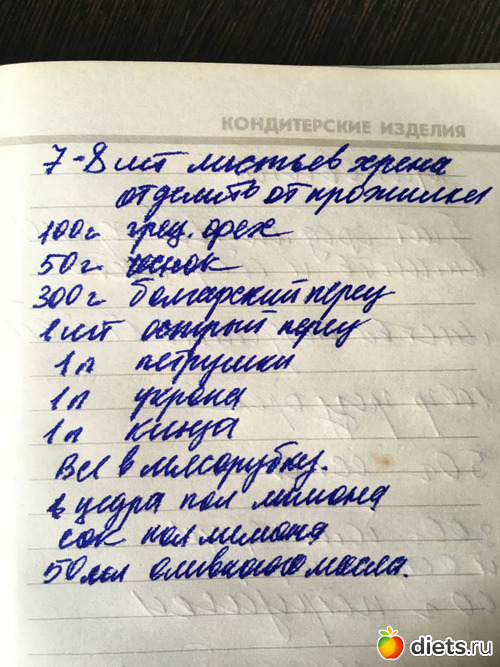 КОНДИТЕРСКИЕ ИЗДЕЛИЯ
7-8 шт листьев хрена
отделить от прожилки
100г грец. орех
50г. чеснок
300г болгарский перец
1 шт острый перец
1п петрушки
1п укропа
1п кинза
Всё в мясорубку.
цедра пол лимона
сок пол лимона
50мл оливкового масла.
diets.ru